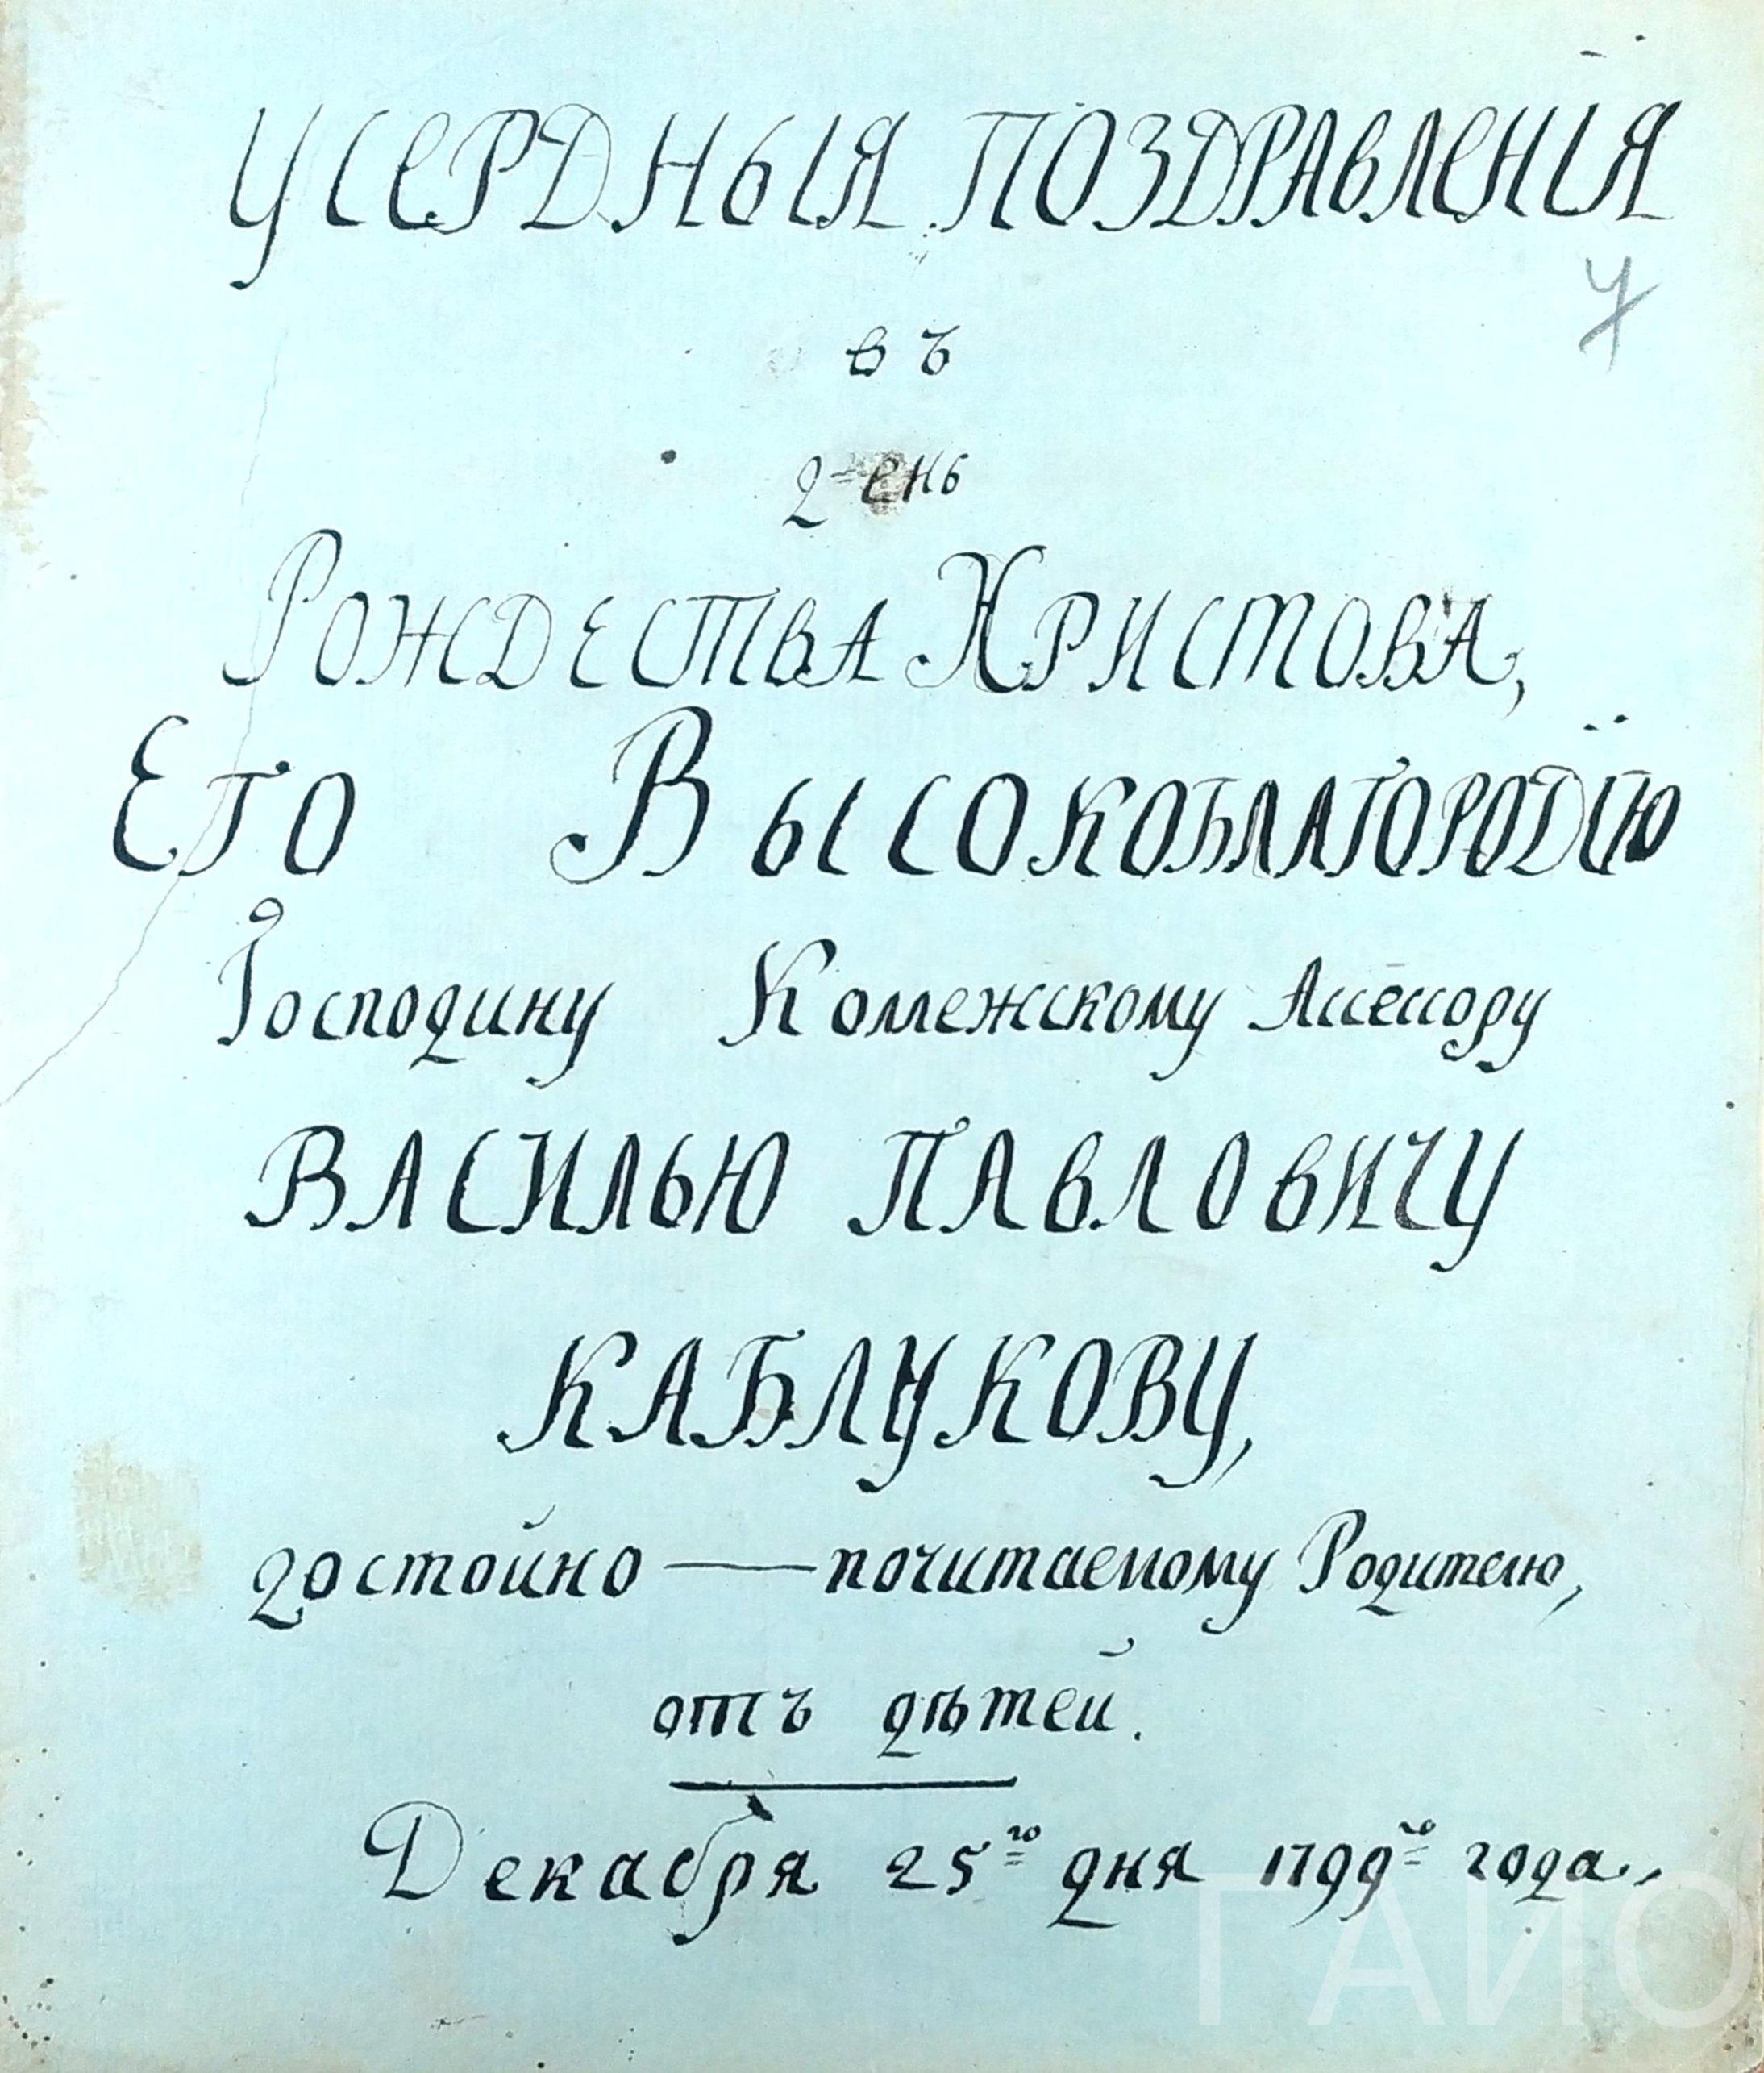 УСЕРДНЫЯ ПОЗДРАВЛЕНІЯ
7
въ
д=ень
РОЖДЕСТВА ХРИСТОВА,
ЕГО ВЫСОКОБЛАГОРОДІЮ
Господину Коллежскому Ассессору
ВАСИЛЬЮ ПАВЛОВИЧУ
КАБЛУКОВУ,
достойно — почитаемому Родителю,
отъ дѣтей.
Декабря 25го дня 1799го года.
ГАИО